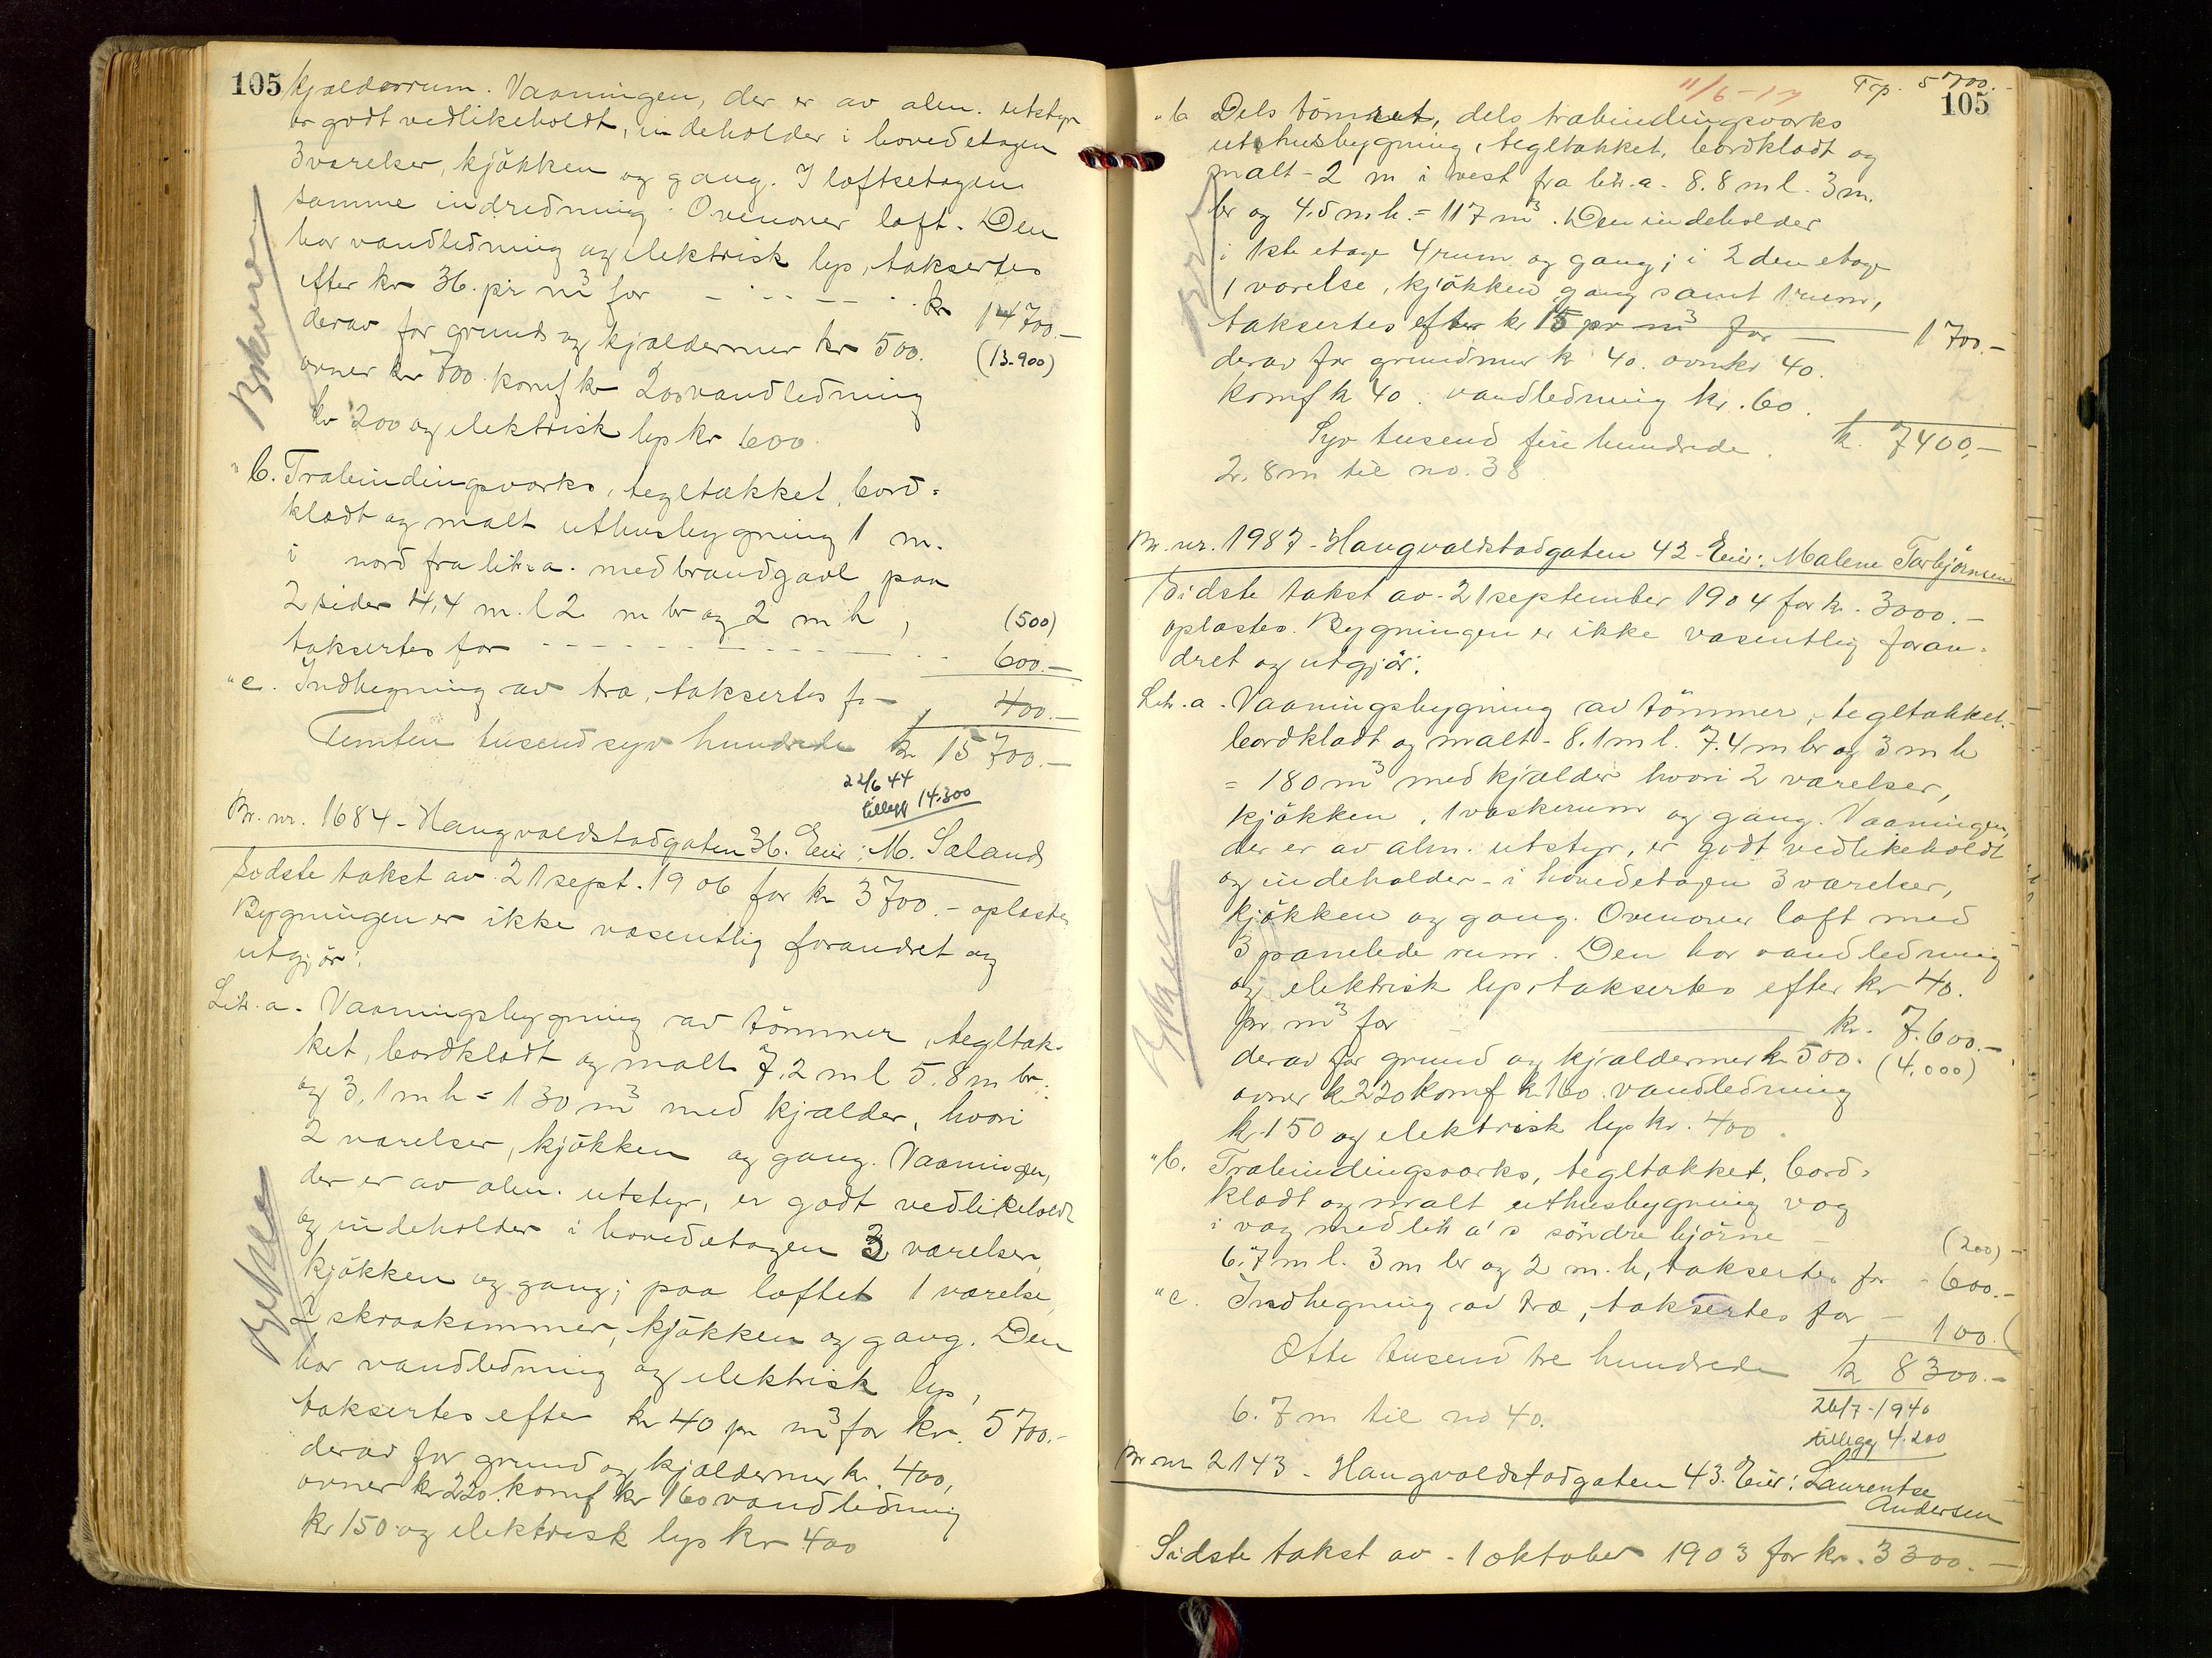 105
kjælderrum. Vaaningen, der er av alm. utstyr
er godt vedlikeholdt, indeholder i hovedetagen
3 værelser, kjökken og gang. I loftsetagen
samme indredning. Ovenover loft. Den
har vandledning og elektrisk lys, taksertes
efter kr 36. pr m³ for - - - - kr 14700.-
derav for grund og kjældermur kr 500. (13.900)
ovner kr 700 komf kr 200 vandledning
kr 200 og elektrisk lys kr 600.
" b. Træbindingsværks, tegltækket, bord=
klædt og malt uthusbygning 1 m.
i nord fra litr. a. med brandgavl paa
2 sider 4,4 m. l 2 m br og 2 m h, (500)
taksertes for - - - - - 600.-
" c. Indhegning av træ, taksertes for - 400.-
Femten tusend syv hundrede kr 15700.-
22/6 44
tillegg 14.300
Br. nr. 1684 - Haugvaldstadgaten 36. Eier: M. Saland
Sidste takst av 21 sept. 1906 for kr 3700.- oplæstes
Bygningen er ikke væsentlig forandret og
utgjör:
Litr. a. Vaaningsbygning av tömmer, tegltæk-
ket, bordklædt og malt 7,2 m l 5.8 m br.
og 3,1 m h = 130 m³ med kjælder, hvori
2 værelser, kjökken og gang. Vaaningen,
der er av alm. utstyr, er godt vedlikeholdt
og indeholder i hovedetagen 3 værelser,
kjökken og gang; paa loftet 1 værelse,
2 skraakammer, kjökken og gang. Den
har vandledning og elektrisk lys,
taksertes efter kr 40 pr m³ for kr. 5700.-
derav for grund og kjældermur kr. 400,
ovner kr 220. komf kr 160 vandledning
kr 150 og elektrisk lys kr 400
11/6-17
Trp. 5700.-
105
" b. Dels tömret, dels træbindingsværks
uthusbygning, tegltækket, bordklædt og
malt - 2 m i vest fra litr. a. 8.8 m l. 3 m.
br og 4.5 m h. = 117 m³. Den indeholder
i 1ste etage 4 rum og gang; i 2den etage
1 værelse, kjökken, gang samt 1 rum,
taksertes efter kr 15 pr m³ for — 1700.-
derav for grundmur kr 40. ovn kr 40.
komf kr 40. vandledning kr. 60.
Syv tusend fire hundrede. kr. 7400,-
2.8 m til no. 38
Br. nr. 1987 - Haugvaldstadgaten 42 - Eier: Malene Torbjörnsen
Sidste takst av 21 september 1904 for kr. 3000.-
oplæstes. Bygningen er ikke væsentlig foran=
dret og utgjör:
Litr. a. Vaaningsbygning av tömmer, tegltækket,
bordklædt og malt - 8.1 m l. 7.4 m br og 3 m h
= 180 m³ med kjælder hvori 2 værelser,
kjökken, 1 vaskerum og gang. Vaaningen,
der er av alm. utstyr, er godt vedlikeholdt
og indeholder - i hovedetagen 3 værelser,
kjökken og gang. Ovenover loft med
3 panelede rum. Den har vandledning
og elektrisk lys, taksertes efter kr 40.
pr m³ for — kr. 7.600.-
derav for grund og kjældermur kr 500. (4.000)
ovner kr 220 komf kr 160. vandledning
kr. 150 og elektrisk lys kr. 400.
" b. Træbindingsværks, tegltækket, bord=
klædt og malt uthusbygning væg
i væg med litr a's söndre hjörne - (200) -
6.7 m l. 3 m br og 2 m. h, taksertes for - 600.-
" c. Indhegning av træ, taksertes for - 100.
Otte tusend tre hundrede kr 8300.-
26/7-1940
tillegg 4.200
6.7 m til no 40.
Br. nr 2143 - Haugvaldstadgaten 43. Eier: Laurentse
Andersen
Sidste takst av - 1 oktober 1903 for kr. 3300.-